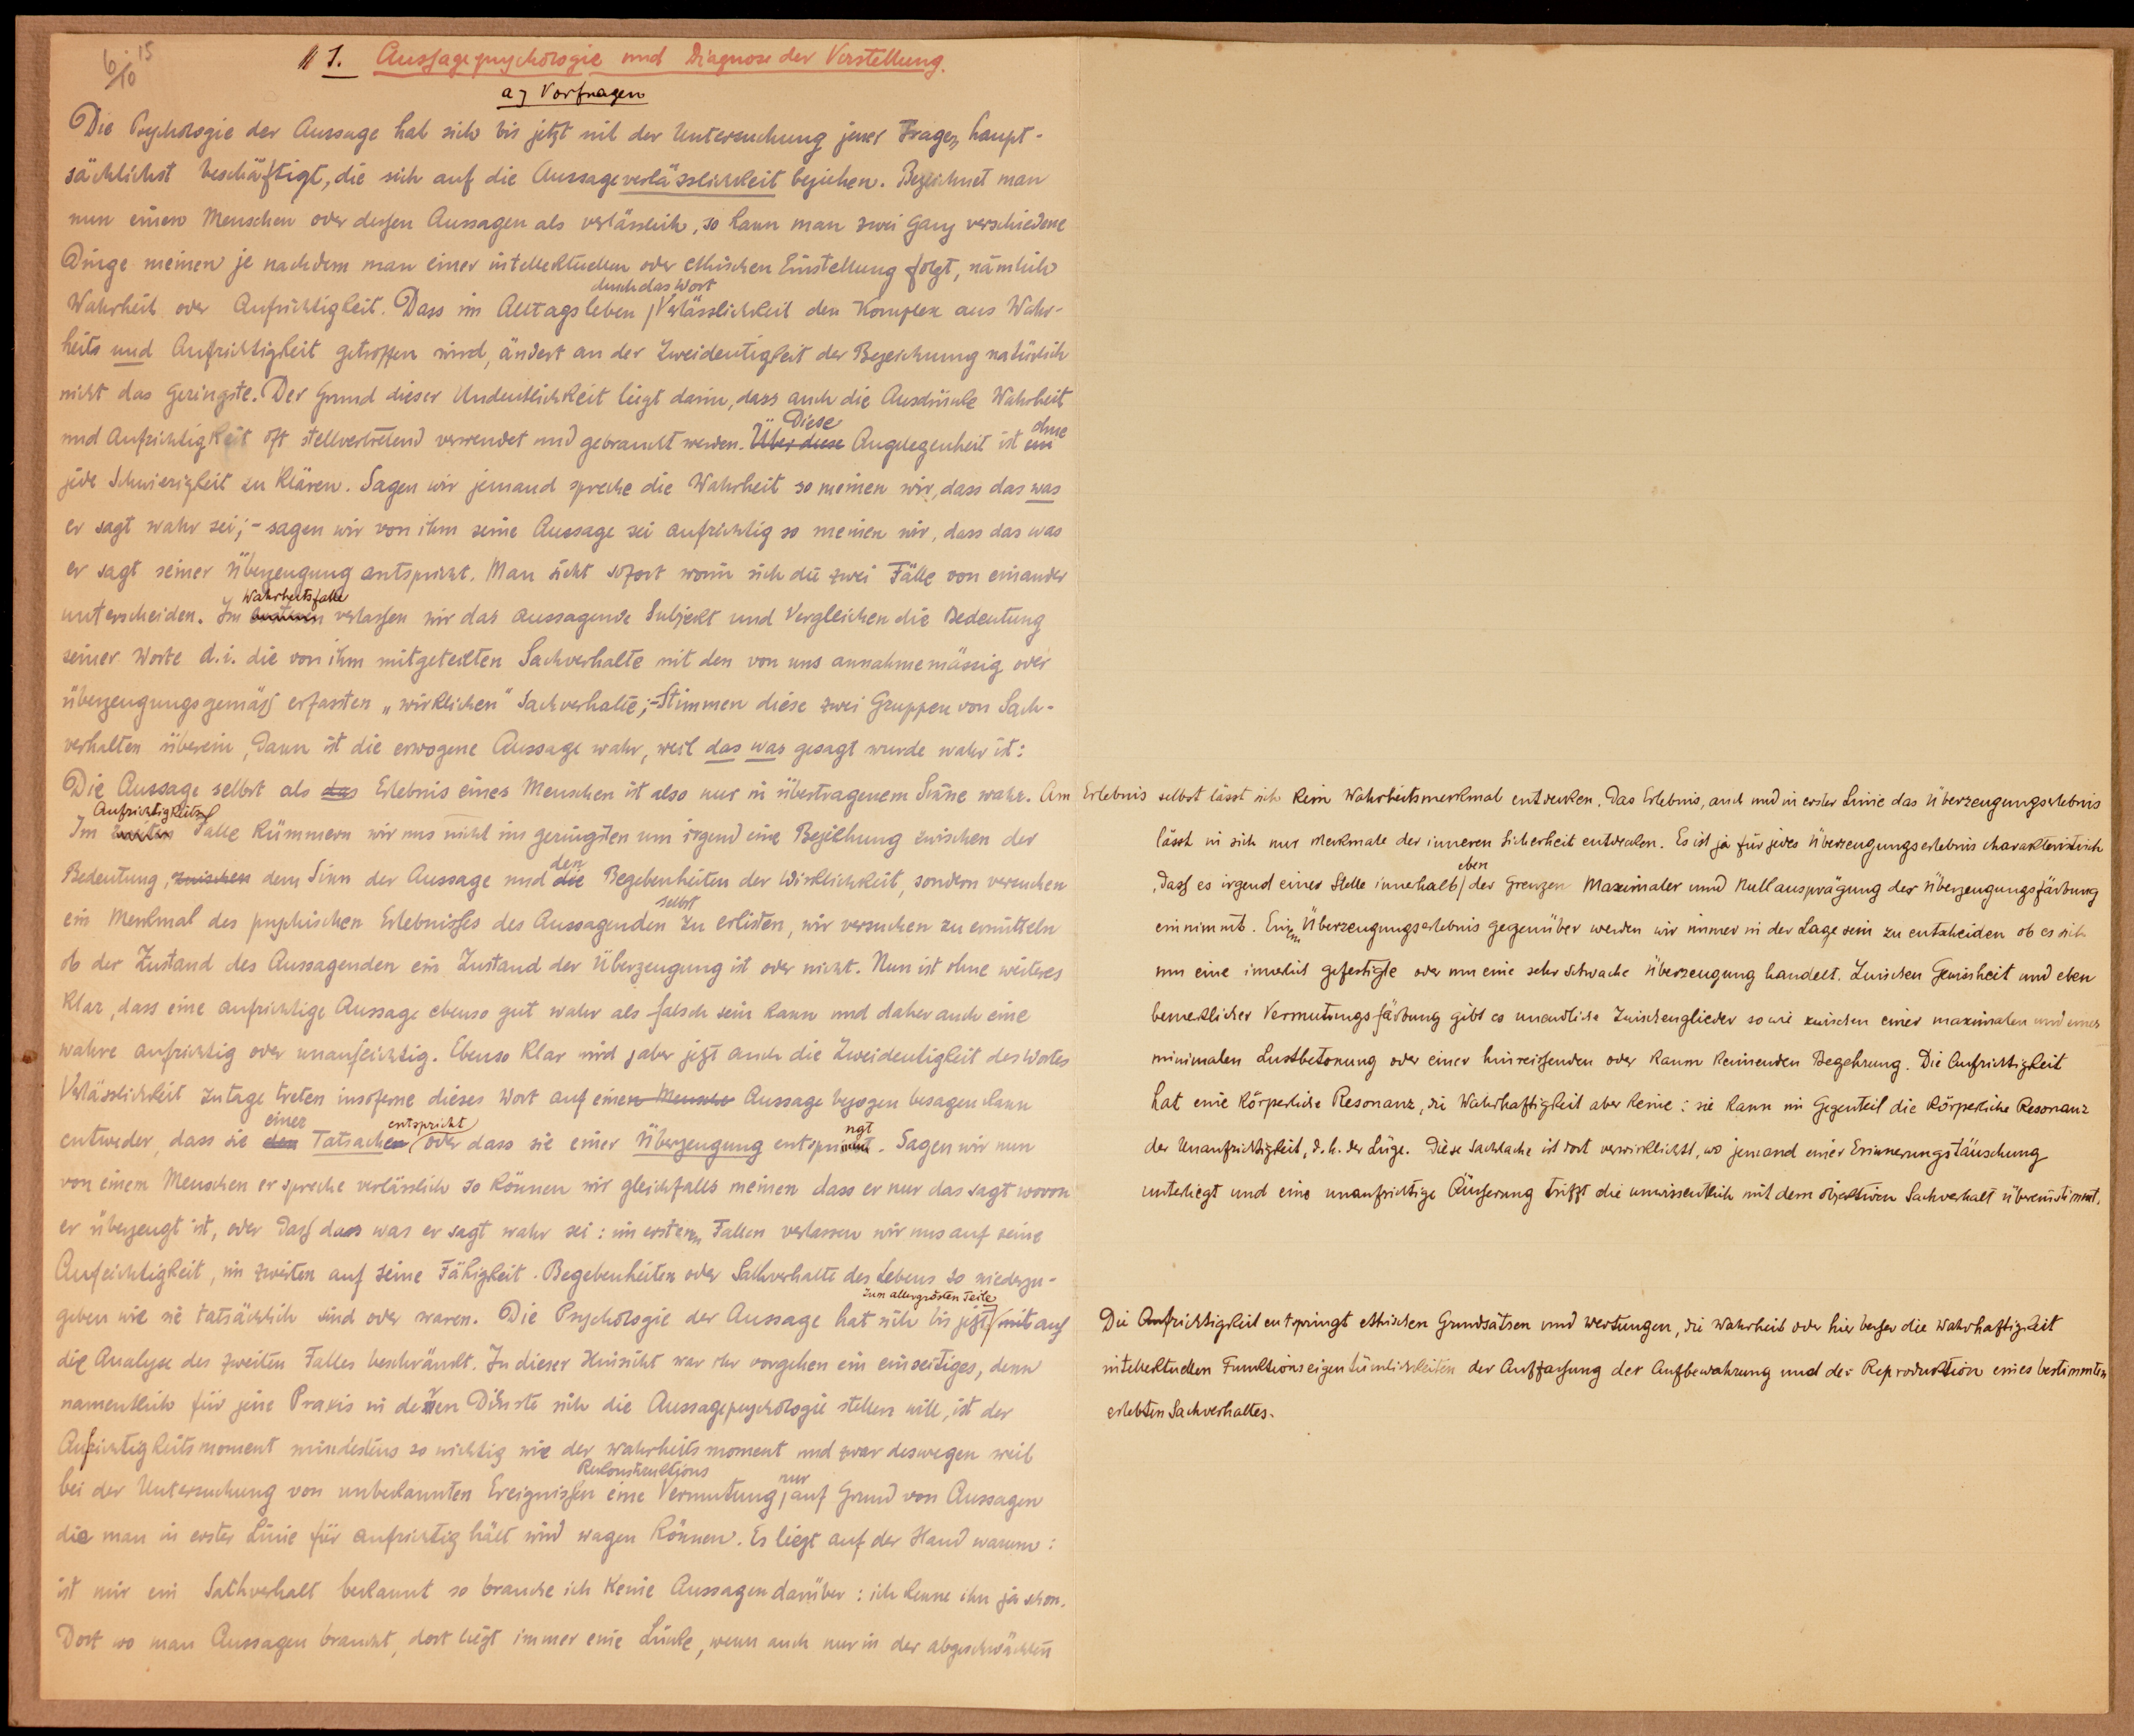 6/10 15
§ 1. Aussagepsychologie und Diagnose der Verstellung.
a) Vorfragen
Die Psychologie der Aussage hat sich bis jetzt mit der Untersuchung jener Fragen haupt-
sächlichst beschäftigt, die sich auf die Aussageverlässlichkeit beziehen. Bezeichnet man
nun einen Menschen oder dessen Aussagen als verlässlich, so kann man zwei ganz verschiedene
Dinge meinen je nachdem man einer intellektuellen oder ethischen Einstellung folgt, nämlich
durch das Wort
Wahrheit oder Aufrichtigkeit. Dass im Alltagsleben Verlässlichkeit den Komplex aus Wahr-
heits und Aufrichtigkeit getroffen wird, ändert an der Zweideutigkeit der Bezeichnung natürlich
nicht das Geringste. Der Grund dieser Undeutlichkeit liegt darin, dass auch die Ausdrücke Wahrheit
Diese ohne
und Aufrichtigkeit oft stellvertretend verwendet und gebraucht werden. Über diese Angelegenheit ist ein
jede Schwierigkeit zu klären. Sagen wir jemand spreche die Wahrheit so meinen wir, dass das was
er sagt wahr sei; - sagen wir von ihm seine Aussage sei aufrichtig so meinen wir, dass das was
er sagt seiner Überzeugung entspricht. Man sieht sofort worin sich die zwei Fälle von einander
Wahrheitsfalle
unterscheiden. Im verlassen wir das aussagende Subjekt und Vergleichen die Bedeutung
seiner Worte d.i. die von ihm mitgeteilten Sachverhalte mit den von uns annahmemässig oder
überzeugungsgemäss erfassten „wirklichen" Sachverhalte; - Stimmen diese zwei Gruppen von Sach-
verhalten überein, dann ist die erwogene Aussage wahr, weil das was gesagt wurde wahr ist:
Die Aussage selbst als das Erlebnis eines Menschen ist also nur in übertragenem Sinne wahr. Am Erlebnis selbst lässt sich kein Wahrheitsmerkmal entdecken. Das Erlebnis, auch und in erster Linie das Überzeugungserlebnis
lässt in sich nur Merkmale der inneren Sicherheit entdecken. Es ist ja für jedes Überzeugungserlebnis charakteristisch
eben
, dass es irgend einer Stelle innerhalb der Grenzen Maximaler und Nullausprägung der Überzeugungsfärbung
einnimmt. Einem Überzeugungserlebnis gegenüber werden wir immer in der Lage sein zu entscheiden ob es sich
um eine innerlich gefestigte oder um eine sehr schwache Überzeugung handelt. Zwischen Gewissheit und eben
bemerklicher Vermutungsfärbung gibt es unendliche Zwischenglieder so wie zwischen einer maximalen und einer
minimalen Lustbetonung oder einer hinreissenden oder kaum keimenden Begehrung. Die Aufrichtigkeit
hat eine körperliche Resonanz, die Wahrhaftigkeit aber keine: sie kann im Gegenteil die körperliche Resonanz
der Unaufrichtigkeit, d.h. der Lüge. Diese Sachlache ist dort verwirklicht, wo jemand einer Erinnerungstäuschung
unterliegt und eine unaufrichtige Äusserung trifft die unwissentlich mit dem objektiven Sachverhalt übereinstimmt.
Aufrichtigkeits
Im zweiten Falle kümmern wir uns nicht im geringsten um irgend eine Beziehung zwischen der
den
Bedeutung, zwischen dem Sinn der Aussage und die Begebenheiten der Wirklichkeit, sondern versuchen
selbst
ein Merkmal des psychischen Erlebnisses des Aussagenden zu erlisten, wir versuchen zu ermitteln
ob der Zustand des Aussagenden ein Zustand der Überzeugung ist oder nicht. Nun ist ohne weiteres
klar, dass eine aufrichtige Aussage ebenso gut wahr als falsch sein kann und daher auch eine
wahre aufrichtig oder unaufrichtig. Ebenso klar wird aber jetzt auch die Zweideutigkeit des Wortes
Verlässlichkeit zutage treten insoferne dieses Wort auf einen Mensche Aussage bezogen besagen kann
einer entspricht ngt
entweder, dass sie den Tatsachen oder dass sie einer Überzeugung entspri. Sagen wir nun
von einem Menschen er spreche verlässlich so können wir gleichfalls meinen dass er nur das sagt wovon
er überzeugt ist, oder dass das was er sagt wahr sei: im ersteren Fallen verlassen wir uns auf seine
Aufrichtigkeit, im zweiten auf seine Fähigkeit. Begebenheiten oder Sachverhalte des Lebens so niederzu-
zum allergrössten Teile
geben wie sie tatsächlich sind oder waren. Die Psychologie der Aussage hat sich bis jetzt mit auf
die Analyse des zweiten Falles beschränkt. In dieser Hinsicht war ihr vorgehen ein einseitiges, denn
namentlich für jene Praxis in deren Dienste sich die Aussagepsychologie stellen will, ist der
Aufrichtigkeitsmoment mindestens so wichtig wie der Wahrheitsmoment und zwar deswegen weil
Rekonstruktions nur
bei der Untersuchung von unbekannten Ereignissen eine Vermutung auf Grund von Aussagen
die man in erster Linie für aufrichtig hält wird wagen können. Es liegt auf der Hand warum:
ist mir ein Sachverhalt bekannt so brauche ich keine Aussagen darüber: ich kenne ihn ja schon.
Dort wo man Aussagen braucht, dort liegt immer eine Lücke, wenn auch nur in der abgeschwächten
Die Aufrichtigkeit entspringt ethischen Grundsätzen und Wertungen, die Wahrheit oder hier besser die Wahrhaftigkeit
intellektuellen Funktionseigentümlichkeiten der Auffassung der Aufbewahrung und der Reproduktion eines bestimmten
erlebten Sachverhaltes.